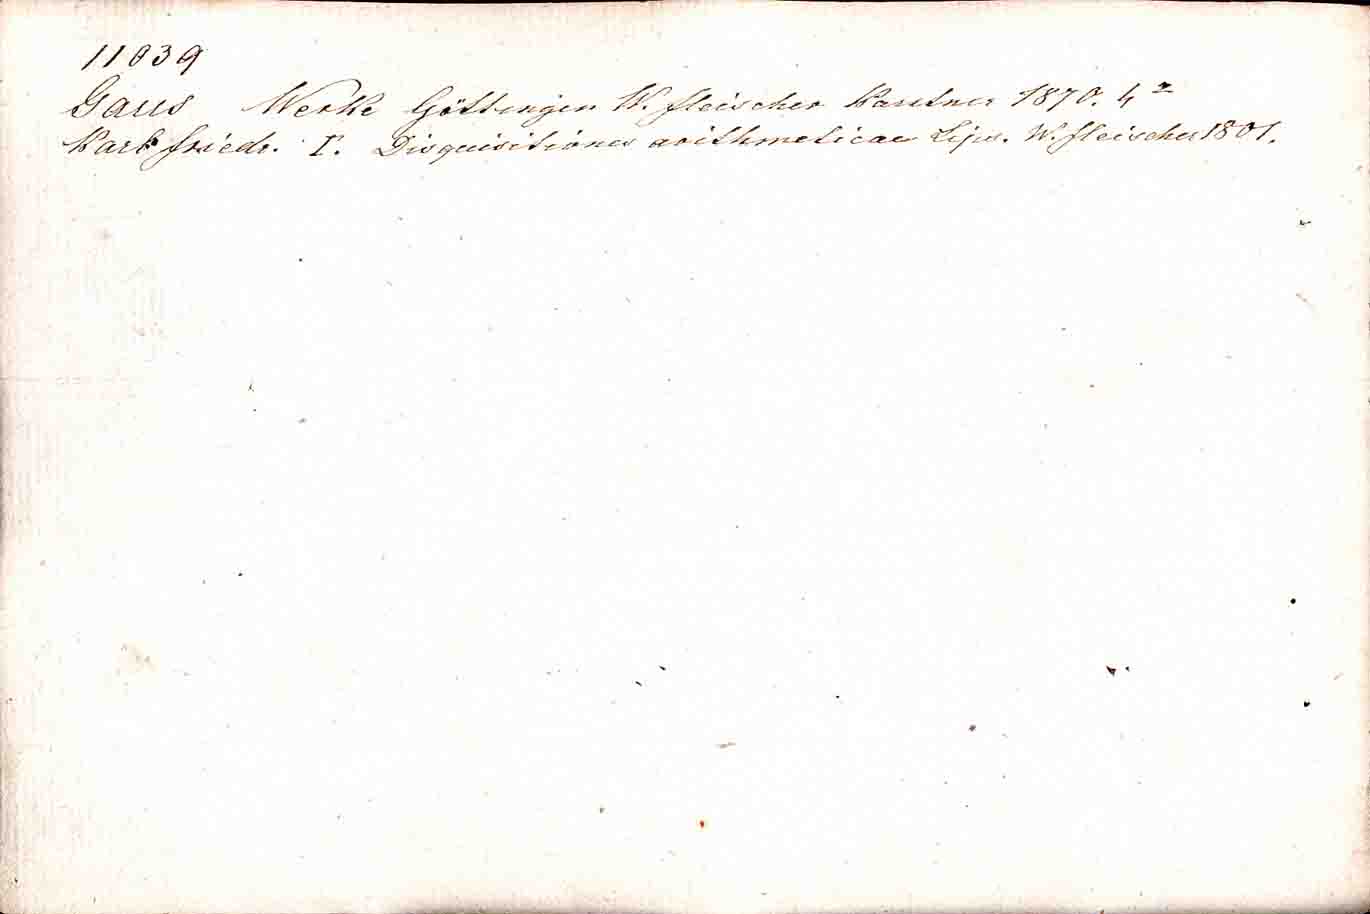 11039
Gaus Werke Göttingen W. fleischer Kaestner 1870. 4º
Karl friedr. I. Disquisitiones arithmeticae Lips. W. fleischer 1801.